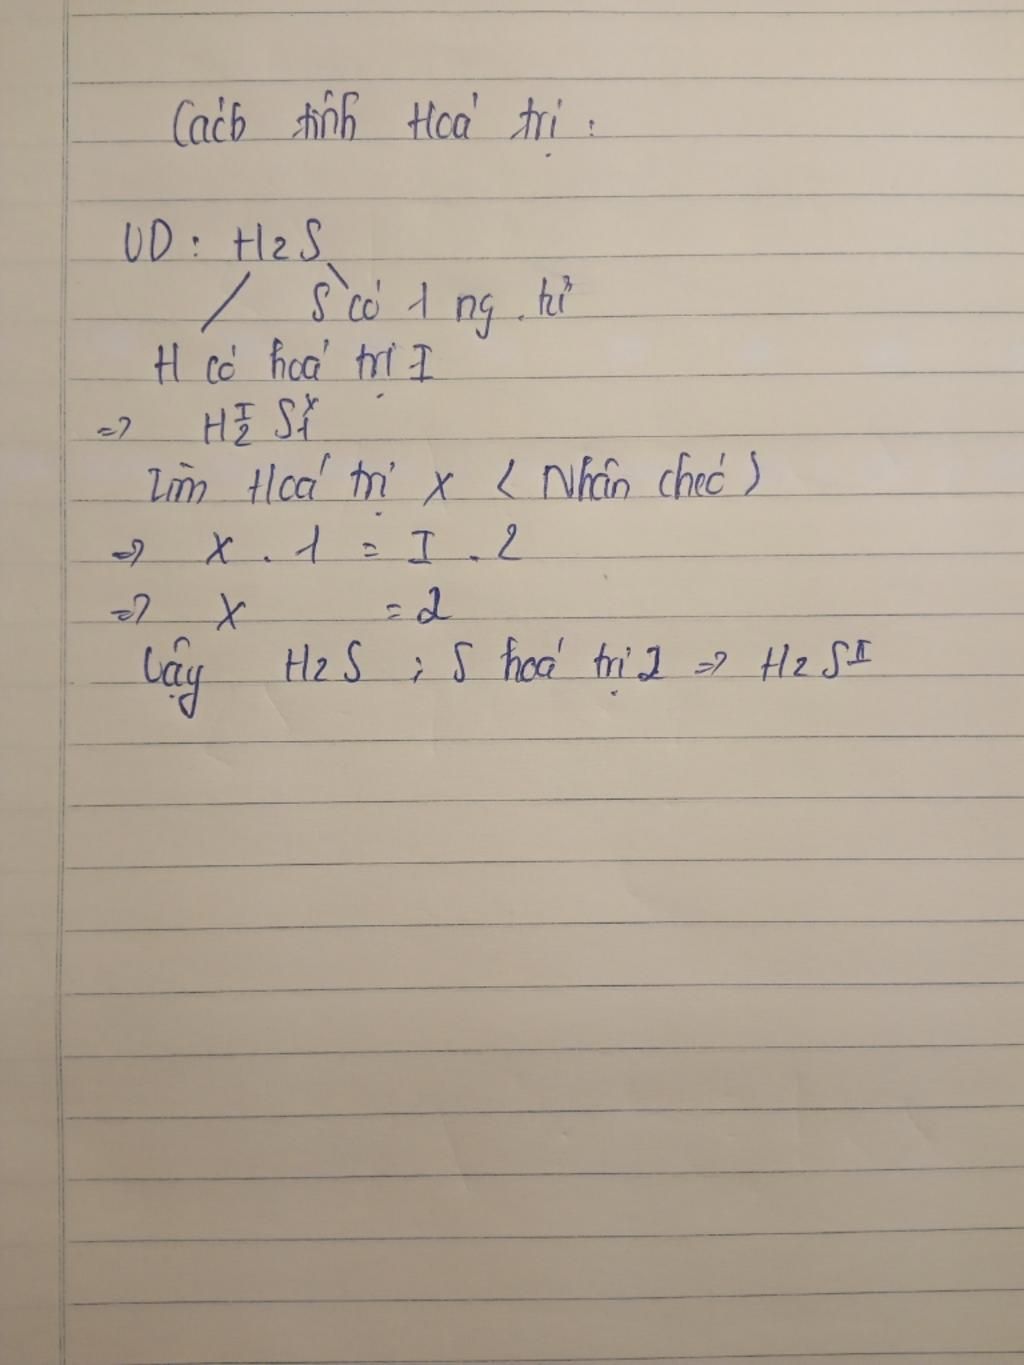 Cách tính Hoá trị :
VD : H2S
S có 1 ng. tử
H có hoá trị I
=> H₂ᴵ S₁ˣ
Tìm Hoá trị x ( Nhân chéo )
=> x . 1 = I . 2
=> x = 2
Vậy H2S ; S hoá trị 2 => H2Sᴵᴵ